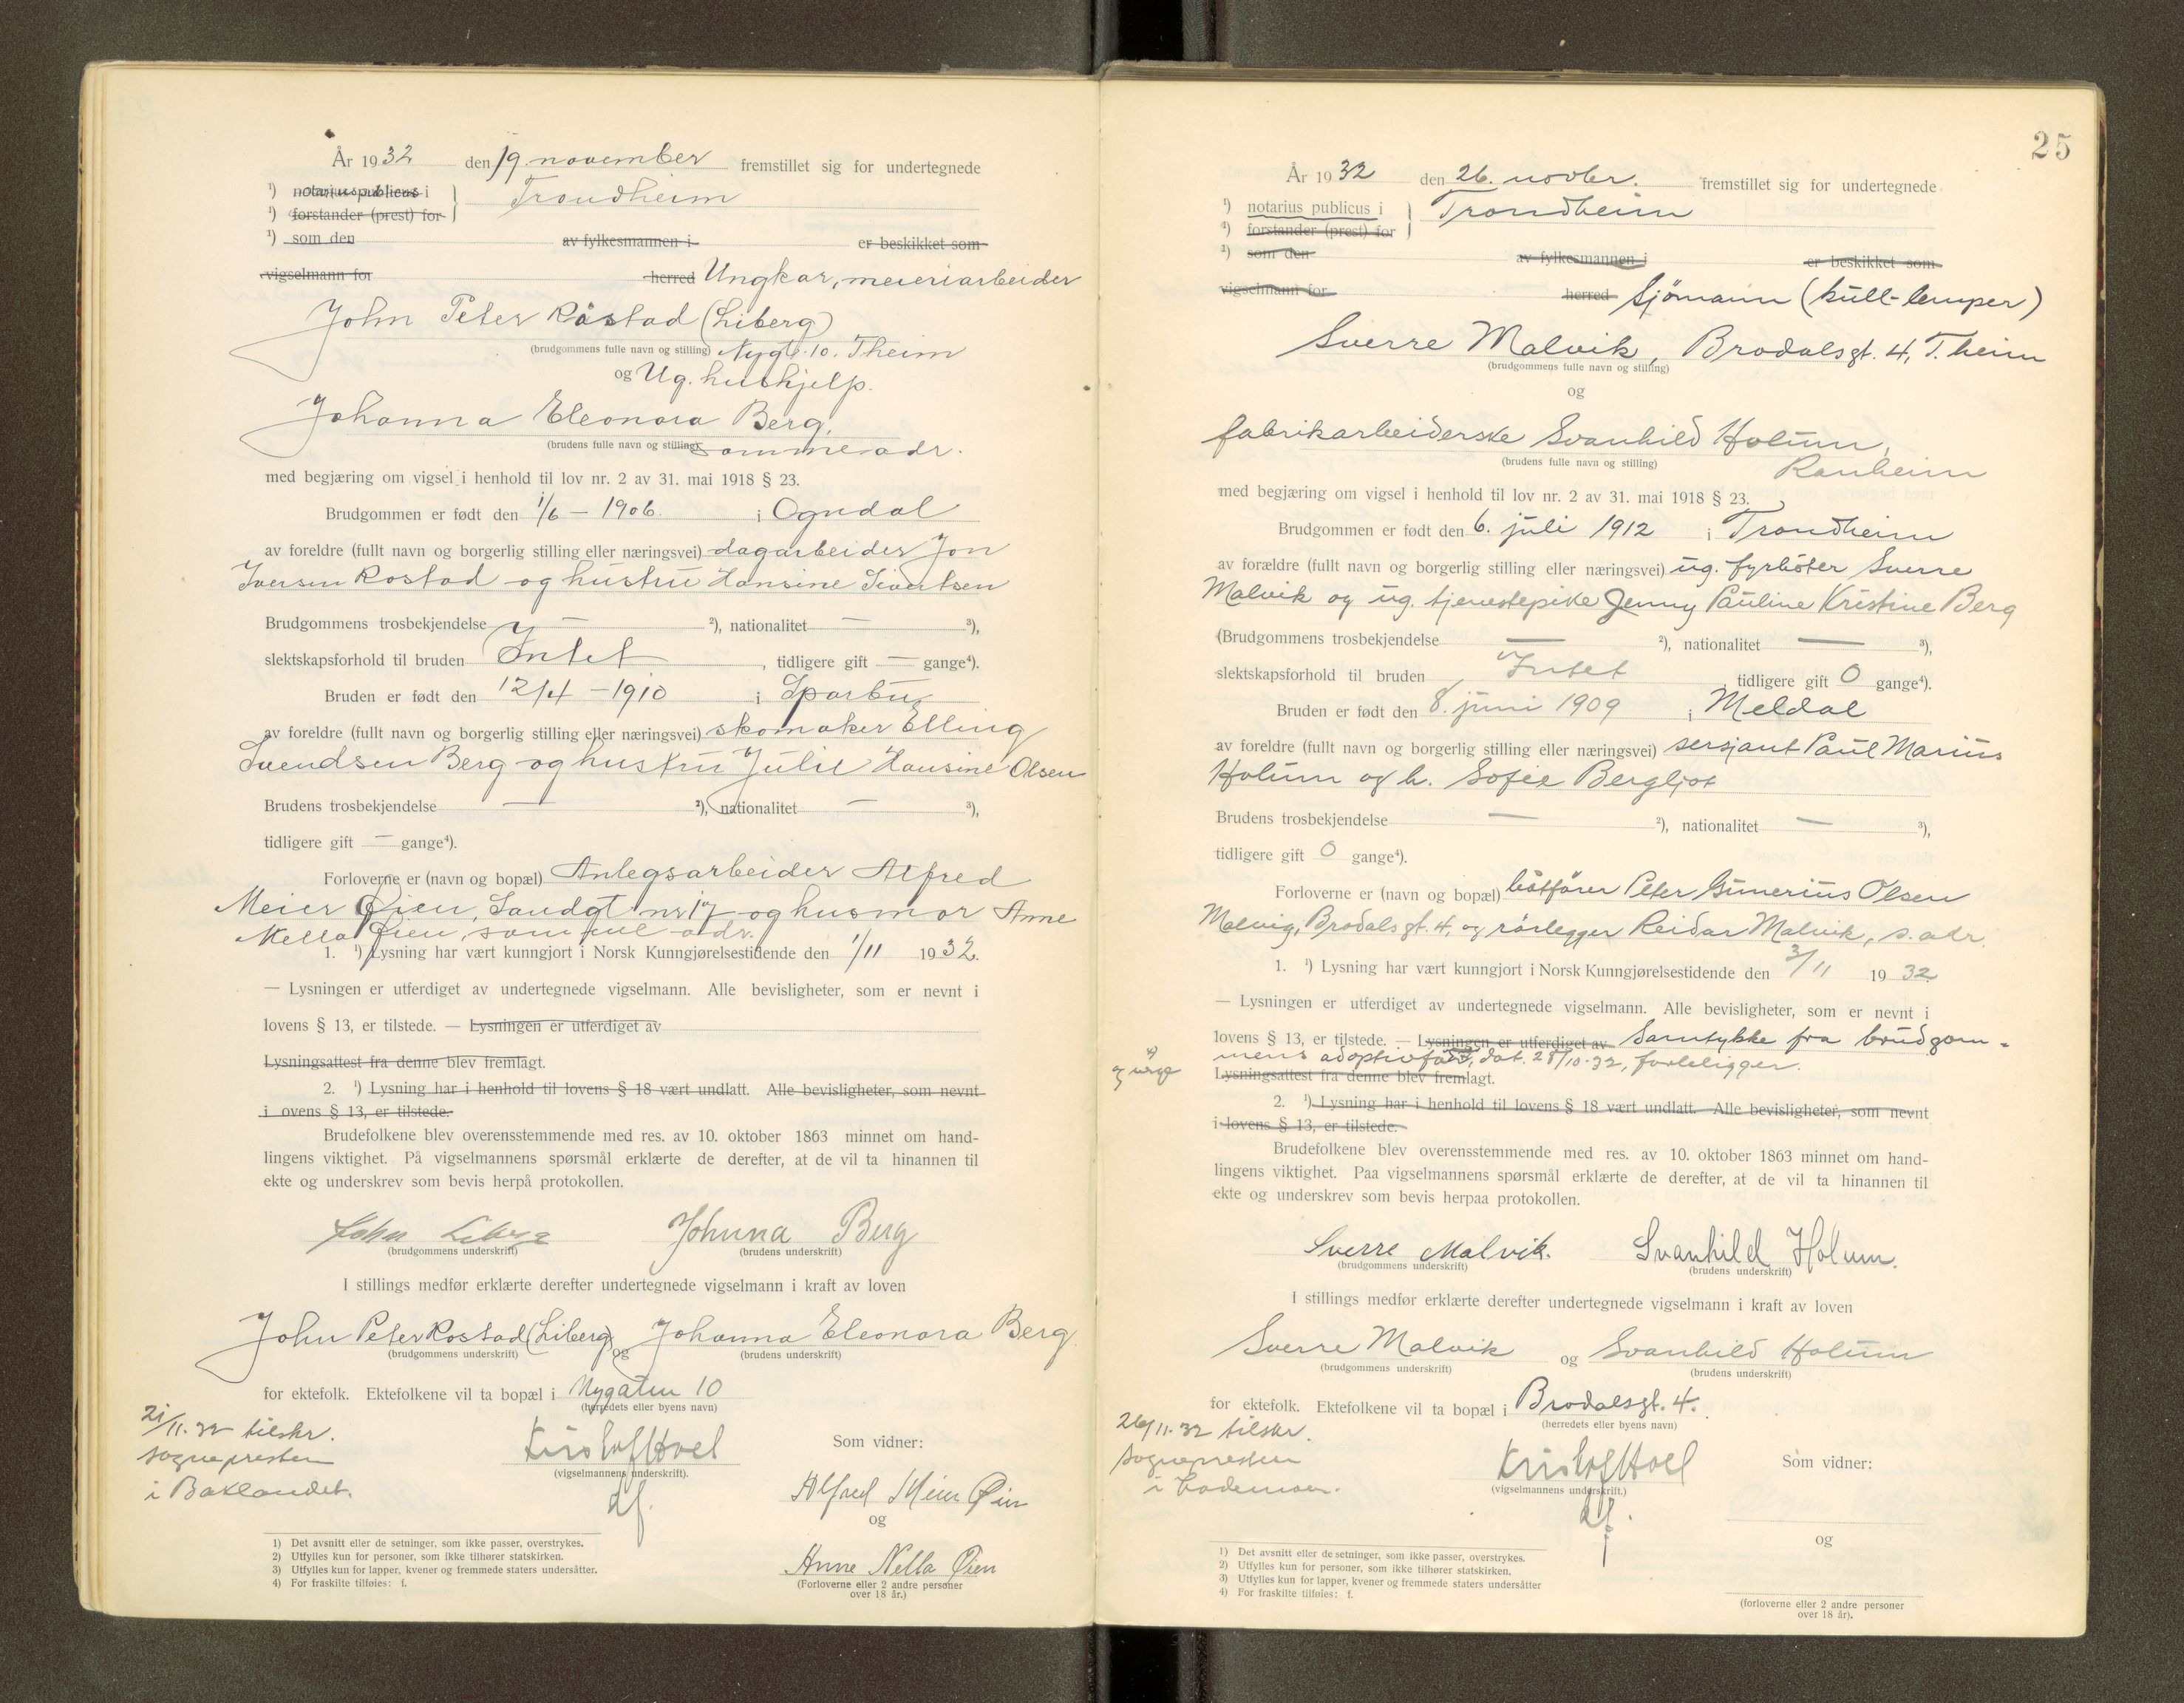 År 1932 den 19. november fremstillet sig for undertegnede
1) notarius publicus i
1) forstander (prest) for
Trondheim
1) som den av fylkesmannen i er beskikket som
vigselmann for herred Ungkar, meieriarbeider
John Peter Råstad (Liberg)
(brudgommens fulle navn og stilling) Nygt. 10. Theim
og Ug. hushjelp.
Johanna Eleonora Berg,
(brudens fulle navn og stilling) samme adr.
med begjæring om vigsel i henhold til lov nr. 2 av 31. mai 1918 § 23.
Brudgommen er født den 1/6 – 1906. i Ogndal
av foreldre (fullt navn og borgerlig stilling eller næringsvei) dagarbeider Jon
Iversen Rostad og hustru Hansine Sivertsen
Brudgommens trosbekjendelse — 2), nationalitet — 3),
slektskapsforhold til bruden Intet, tidligere gift — gange4).
Bruden er født den 12/4 – 1910 i Sparbu
av foreldre (fullt navn og borgerlig stilling eller næringsvei) skomaker Elling
Svendsen Berg og hustru Julie Hansine Olsen
Brudens trosbekjendelse — 2), nationalitet — 3),
tidligere gift — gange4).
Forloverne er (navn og bopæl) Anlegsarbeider Alfred
Meier Øien, Sandgt nr 17 og husmor Anne
Nella Øien, samme adr.
1. 1) Lysning har vært kunngjort i Norsk Kunngjørelsestidende den 1/11 1932.
— Lysningen er utferdiget av undertegnede vigselmann. Alle bevisligheter, som er nevnt i
lovens § 13, er tilstede. — Lysningen er utferdiget av
Lysningsattest fra denne blev fremlagt.
2. 1) Lysning har i henhold til lovens § 18 vært undlatt. Alle bevisligheter, som nevnt
i ovens § 13, er tilstede.
Brudefolkene blev overensstemmende med res. av 10. oktober 1863 minnet om hand-
lingens viktighet. På vigselmannens spørsmål erklærte de derefter, at de vil ta hinannen til
ekte og underskrev som bevis herpå protokollen.
John Liberg Johnna Berg
(brudgommens underskrift) (brudens underskrift)
I stillings medfør erklærte derefter undertegnede vigselmann i kraft av loven
John Peter Rostad (Liberg) og Johanna Eleonora Berg
(brudgommens underskrift) (brudens underskrift)
for ektefolk. Ektefolkene vil ta bopæl i Nygaten 10
(herredets eller byens navn)
21/11.32 tilskr.
sognepresten
i Baklandet.
Krist Hoel
(vigselmannens underskrift).
df.
Som vidner:
Alfred Meier Øien
og
Anne Nella Øien
(Forloverne eller 2 andre personer
over 18 år.)
1) Det avsnitt eller de setninger, som ikke passer, overstrykes.
2) Utfylles kun for personer, som ikke tilhører statskirken.
3) Utfylles kun for lapper, kvener og fremmede staters undersåtter.
4) For fraskilte tilføies: f.
25
År 1932 den 26. novbr. fremstillet sig for undertegnede
1) notarius publicus i
1) forstander (prest) for
Trondheim
1) som den av fylkesmannen i er beskikket som
vigselmann for herred Sjömann (kull-lemper)
Sverre Malvik, Brodalsgt. 4, T.heim
(brudgommens fulle navn og stilling)
og
fabrikarbeiderske Svanhild Holum,
(brudens fulle navn og stilling) Ranheim
med begjæring om vigsel i henhold til lov nr. 2 av 31. mai 1918 § 23.
Brudgommen er født den 6. juli 1912 i Trondheim
av forældre (fullt navn og borgerlig stilling eller næringsvei) ug. fyrböter Sverre
Malvik og ug. tjenestepike Jenny Pauline Kristine Berg
(Brudgommens trosbekjendelse — 2), nationalitet — 3),
slektskapsforhold til bruden Intet, tidligere gift 0 gange4).
Bruden er født den 8. juni 1909 i Meldal
av foreldre (fullt navn og borgerlig stilling eller næringsvei) sersjant Paul Marius
Holum og h. Sofie Bergljot
Brudens trosbekjendelse — 2), nationalitet — 3),
tidligere gift 0 gange4).
Forloverne er (navn og bopæl) båtförer Peter Gunerius Olsen
Malvig, Brodalsgt. 4, og rörlegger Reidar Malvik, s. adr.
1. 1) Lysning har vært kunngjort i Norsk Kunngjørelsestidende den 3/11 1932
— Lysningen er utferdiget av undertegnede vigselmann. Alle bevisligheter, som er nevnt i
lovens § 13, er tilstede. — Lysningen er utferdiget av Samtykke fra brudgom-
mens adoptivfar, dat. 28/10-32, foreligger.
og verge
Lysningsattest fra denne blev fremlagt.
2. 1) Lysning har i henhold til lovens § 18 vært undlatt. Alle bevisligheter, som nevnt
i lovens § 13, er tilstede.
Brudefolkene blev overensstemmende med res. av 10. oktober 1863 minnet om hand-
lingens viktighet. Paa vigselmannens spørsmål erklærte de derefter, at de vil ta hinannen til
ekte og underskrev som bevis herpaa protokollen.
Sverre Malvik. Svanhild Holum.
(brudgommens underskrift) (brudens underskrift)
I stillings medfør erklærte derefter undertegnede vigselmann i kraft av loven
Sverre Malvik og Svanhild Holum
(brudgommens underskrift) (brudens underskrift)
for ektefolk. Ektefolkene vil ta bopæl i Brodalsgt. 4.
(herredets eller byens navn)
26/11.32 tilskr.
sognepresten
i Lademoen.
Krist Hoel
(vigselmannens underskrift.)
df.
Som vidner:
og
(forloverne eller 2 andre personer
over 18 år).
1) Det avsnitt eller de setninger, som ikke passer, overstrykes.
2) Utfylles kun for personer, som ikke tilhører statskirken.
3) Utfylles kun for lapper, kvener og fremmede staters undersåtter
4) For fraskilte tilføies: f.